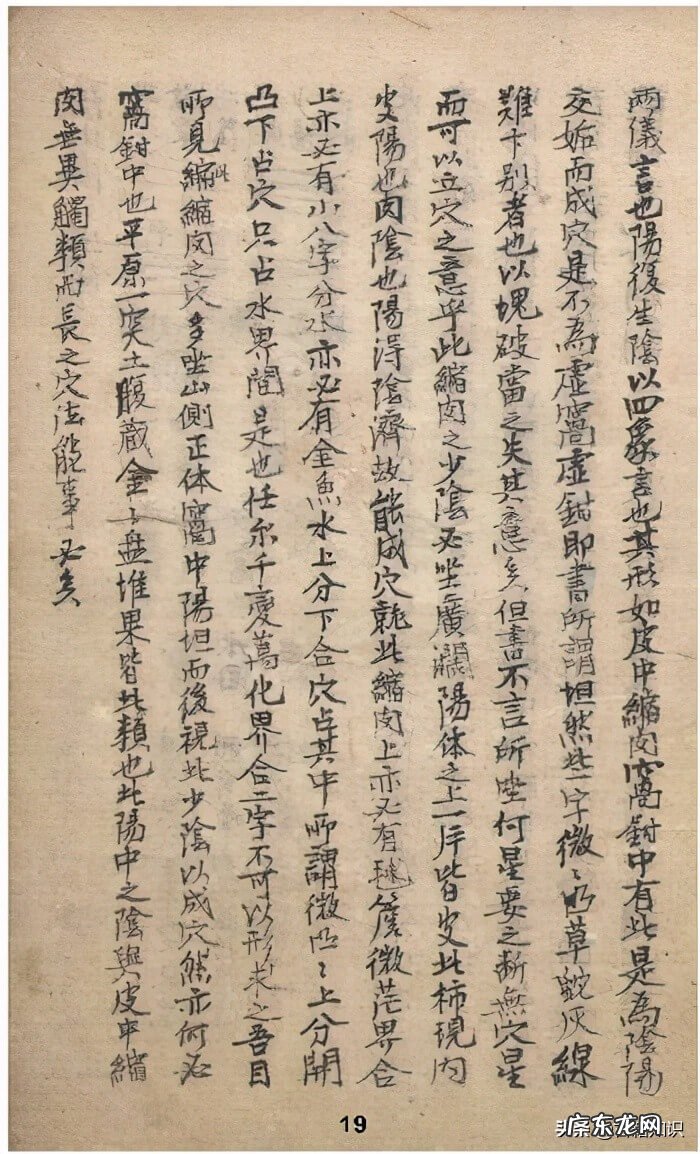 兩儀言也陽復生陰以四象言也其形如皮中縮肉窩鉗中有此是為陰陽
交姤而成穴是不為虛窩虛鉗即書所謂坦然此一字微〻凹草蛇灰線
難卞別者也以塊破當之失其意矣但書不言所坐何星要之斷無穴星
而可以立穴之意乎此縮肉之少陰必坐廣濶陽体之上一片皆皮此柿現肉
皮陽也肉陰也陽得陰濟故能成穴就此縮肉上亦必有毬簷微茫界合
上亦必有小八字分水亦必有金魚水上分下合穴占其中所謂微凹〻上分開
凸下占穴只占水界間是也任尔千变萬化界合二字不可以形求之吾目
所見縮肉之穴多坐山側正体窩中陽坦而後視此少陰以成穴然亦何必
窩鉗中也平原一突土腹藏金卜盤堆果皆此類也此陽中之陰與皮中縮
肉無異觸類而長之穴法能事必矣
19
头条 @
东龙网